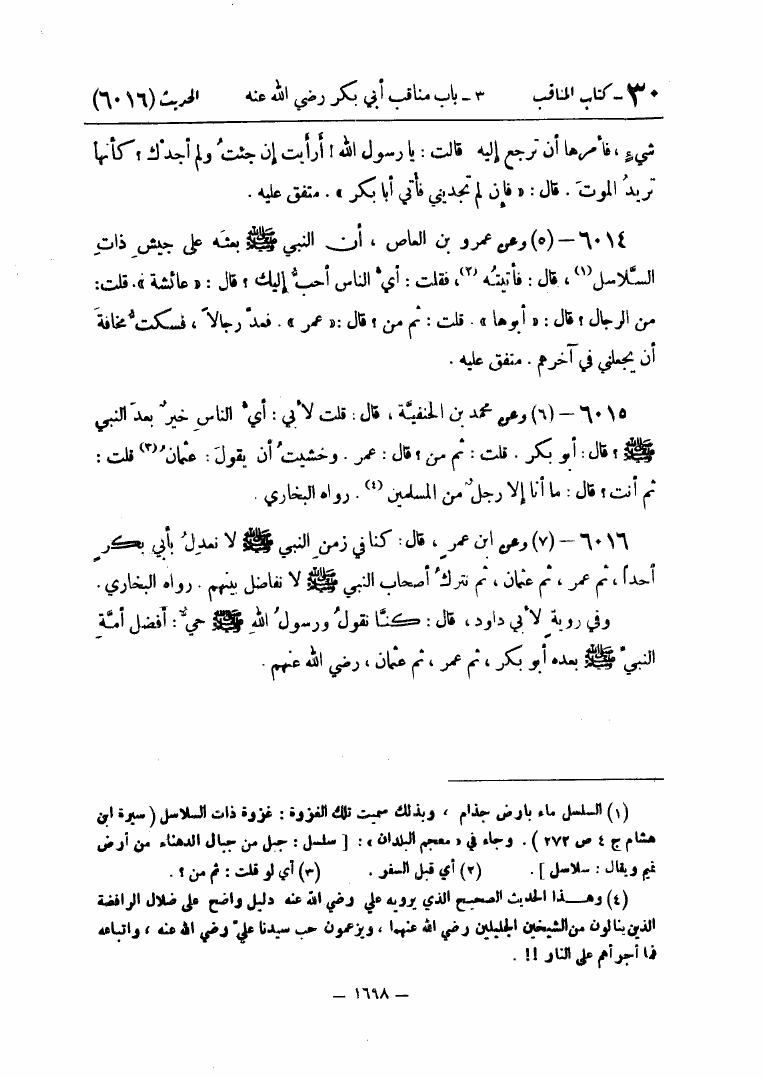 ٣٠ - كتاب المناقب ٣ - باب مناقب أبي بكر رضي الله عنه الحديث (٦٠١٦)
شيءٍ ، فأمرها أن ترجع إليه قالت : يا رسول الله ! أرأيت إن جئتُ ولم أجدْك ؟ كأنها
تريدُ الموتَ . قال : « فإن لم تجديني فأتي أبا بكر » . متفق عليه .
٦٠١٤ – (٥) وعن عمرو بن العاص ، أن النبي ﷺ بعثَه على جيشِ ذاتِ
السَّلاسل(١) ، قال : فأتيتُه(٢) ، فقلت : أيُّ الناس أحبُّ إليك ؟ قال : « عائشة » . قلت :
من الرجال ؟ قال : « أبوها » . قلت : ثم من ؟ قال : « عمر » . فعدَّ رجالاً ، فسكتُّ مخافةَ
أن يجعلني في آخرهم . متفق عليه .
٦٠١٥ – (٦) وعن محمد بن الحنفيَّة ، قال : قلت لأبي : أيُّ الناسِ خيرٌ بعدَ النبي
ﷺ ؟ قال : أبو بكر . قلت : ثم من ؟ قال : عمر . وخشيتُ أن يقولَ : عثمانُ(٣) قلت :
ثم أنت ؟ قال : ما أنا إلا رجلٌ من المسلمين(٤) . رواه البخاري .
٦٠١٦ – (٧) وعن ابن عمرٍ ، قال : كنا في زمنِ النبي ﷺ لا نعدلُ بأبي بكرٍ
أحداً ، ثم عمر ، ثم عثمان ، ثم نتركُ أصحاب النبي ﷺ لا نفاضل بينهم . رواه البخاري .
وفي روبةٍ لأبي داود ، قال : كنَّا نقولُ ورسولُ اللهِ ﷺ حيٌّ : أفضل أمةِ
النبيِّ ﷺ بعده أبو بكر ، ثم عمر ، ثم عثمان ، رضي الله عنهم .
(١) السلسل ماء بارض جذام ، وبذلك سميت تلك الغزوة : غزوة ذات السلاسل ( سيرة ابن
هشام ج ٤ ص ٢٧٢ ) . وجاء في « معجم البلدان » : [ سلسل : جبل من جبال الدهناء من أرض
تميم ويقال : سلاسل ] . (٢) أي قبل السفر . (٣) أي لو قلت : ثم من ؟ .
(٤) وهـذا الحديث الصحيح الذي يرويه علي رضي الله عنه دليل واضح على ضلال الرافضة
الذين ينالون من الشيخين الجليلين رضي الله عنهما ، ويزعمون حب سيدنا عليّ رضي الله عنه ، واتباعه
فما أجرأهم على النار !! .
– ١٦٩٨ –